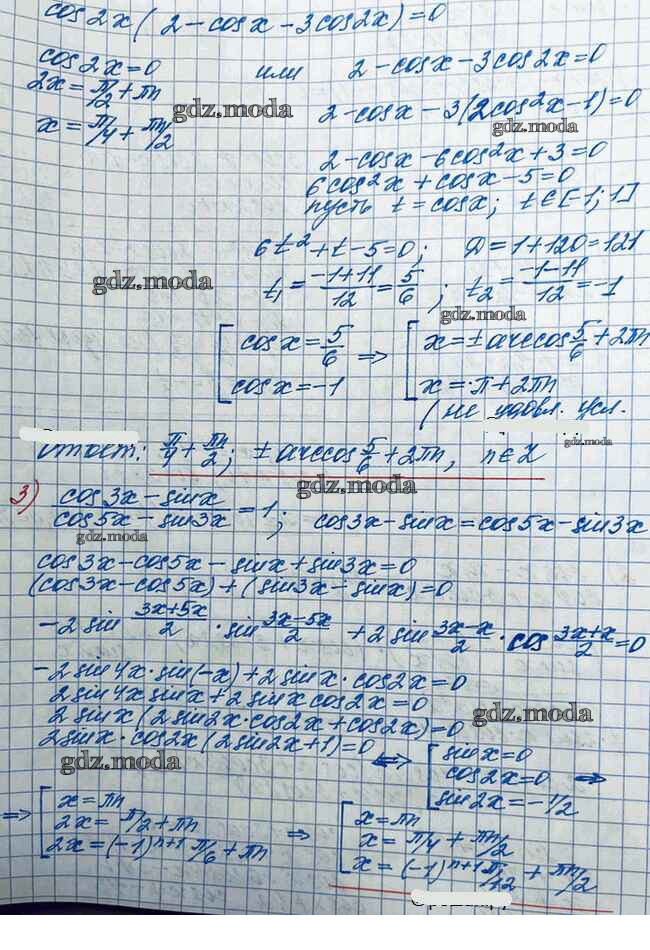 cos2x(2-cosx-3cos2x)=0
cos2x=0 или 2-cosx-3cos2x=0
2x=π/2+πn
2-cosx-3(2cos²x-1)=0
gdz.moda
gdz.moda
x=π/4+πn/2
2-cosx-6cos²x+3=0
6cos²x+cosx-5=0
пусть t=cosx; t∈[-1;1]
6t²+t-5=0; D=1+120=121
gdz.moda
t₁=(-1+11)/12=5/6; t₂=(-1-11)/12=-1
gdz.moda
[cosx=5/6 ⇒ [x=±arccos5/6+2πn
cosx=-1 x=π+2πn
(не удовл. усл.
gdz.moda
Ответ: π/4+πn/2; ±arccos5/6+2πn, n∈Z
gdz.moda
3) (cos3x-sinx)/(cos5x-sin3x)=1; cos3x-sinx=cos5x-sin3x
gdz.moda
cos3x-cos5x-sinx+sin3x=0
(cos3x-cos5x)+(sin3x-sinx)=0
-2sin(3x+5x)/2·sin(3x-5x)/2+2sin(3x-x)/2·cos(3x+x)/2=0
-2sin4x·sin(-x)+2sinx·cos2x=0
2sin4xsinx+2sinxcos2x=0
gdz.moda
2sinx(2sin2x·cos2x+cos2x)=0
2sinx·cos2x(2sin2x+1)=0 ⇔ [sinx=0
gdz.moda
cos2x=0 ⇒
sin2x=-1/2
⇒ [x=πn ⇒ [x=πn
2x=π/2+πn x=π/4+πn/2
2x=(-1)ⁿ⁺¹π/6+πn x=(-1)ⁿ⁺¹π/12+πn/2